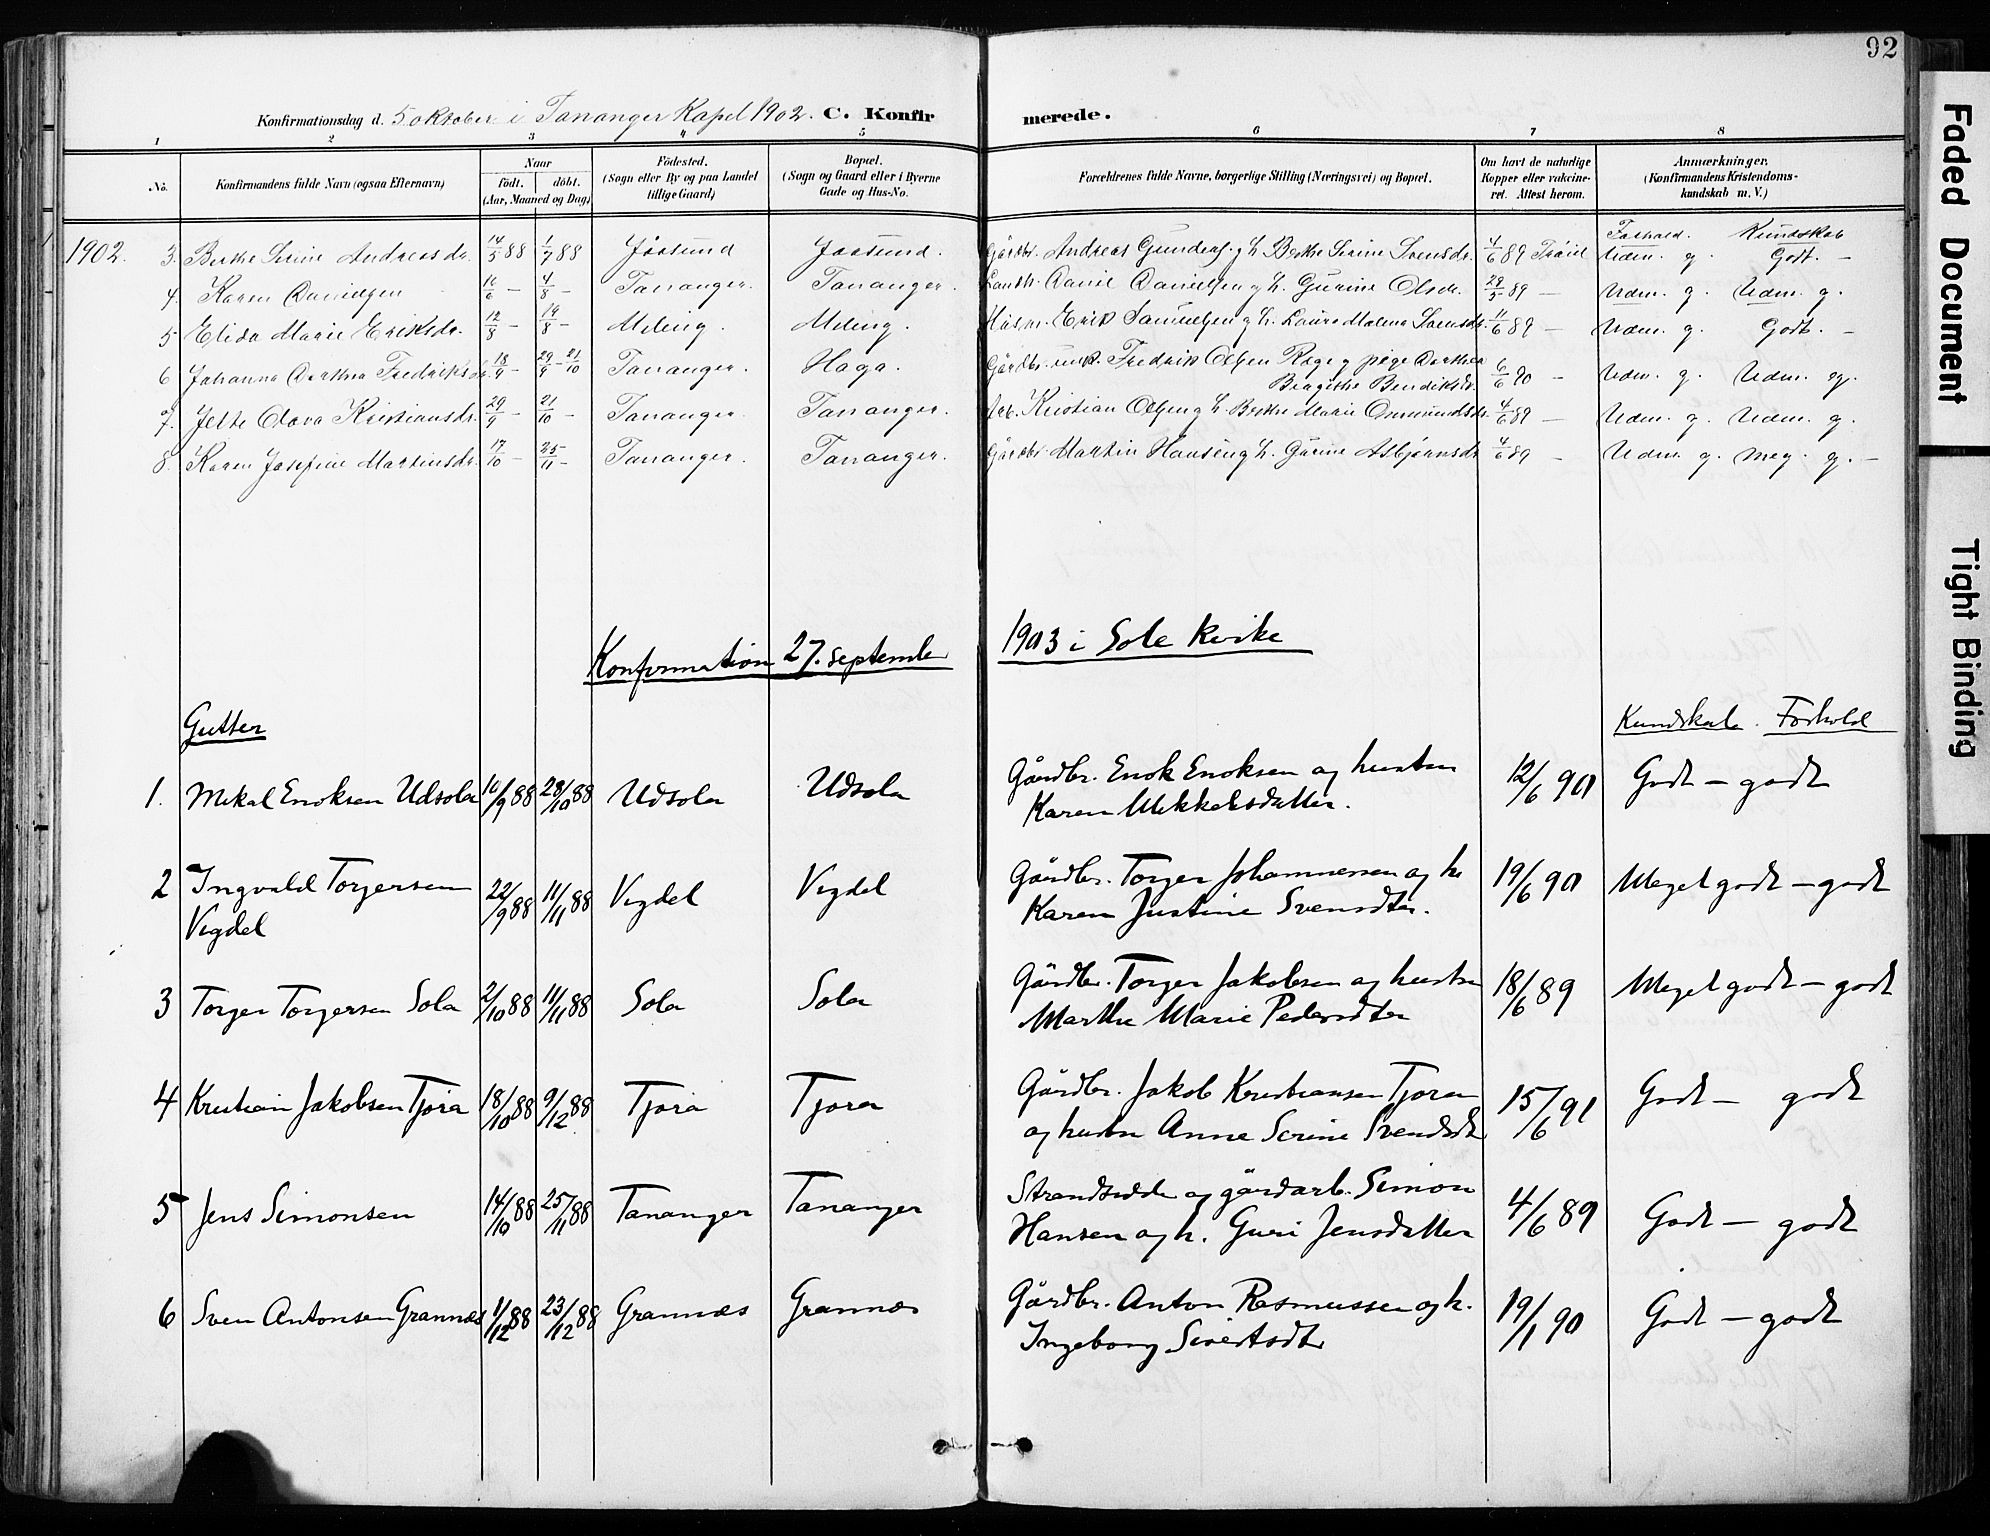 92
Konfirmationsdag d. 5 oktober i Tananger Kapel 1902. C. Konfirmerede.
1 2 3 4 5 6 7 8
No. Konfirmandens fulde Navn (ogsaa Efternavn) Naar födt. döbt. (Aar, Maaned og Dag) Födested. (Sogn eller By og paa Landet tillige Gaard) Bopæl. (Sogn og Gaard eller i Byerne Gade og Hus-No. Forældrenes fulde Navne, borgerlige Stilling (Næringsvei) og Bopæl. Om havt de naturlige Kopper eller vakcineret. Attest herom. Anmærkninger. (Konfirmandens Kristendomskundskab m. V.)
Forhold. Kundskab
1902. 3. Berthe Serine Andreasdr. 14/5 88 1/7 88 Jåsund Jåsund. Gårdbr. Andreas Gunders. g h. Berthe Serine Svensdr. 4/6 89 Udm. g. Godt. –
4. Karen Danielsen 10/6 – 4/8 – Tananger. Tananger. Daniel Danielsen g h. Gurine Olsdr. 29/5 89 – Udm. g. Udm. g.
5 Elida Marie Eriksdr. 12/8 – 19/8 – Meling. Meling. Husm. Erik Samuelsen g h. Laura Malena Svensdr. 11/6 89 – Udm. g. Godt. –
6 Johanna Dorthea Fredriksdr. 18/9 – 29/9 – 21/10 Tananger. Haga. Gårdbr. Fredrik Olsen Rege g pige Dorthea
Bragithe Bendiksdr. 6/6 90 – Udm. g. Udm. g.
7. Jette Olava Kristiansdr. 29/9 – 21/10 – Tananger. Tananger. Arb. Kristian Olsen g h. Berthe Marie Osmundsdr. 4/6 89 – Udm. g. Udm. g.
8. Karen Josefine Martinsdr. 17/10 – 25/11 – Tananger. Tananger. Gårdbr. Martin Hansen g h. Gurine Asbjørnsdr. 4/6 89 – Udm. g. Meg. g. –
Konfirmation 27. september 1903 i Sole kirke
Gutter Kundskab. Forhold
1. Mikal Enoksen Udsola 10/9 88 28/10 88 Udsola Udsola Gårdbr. Enok Enoksen og hustru 12/6 90 Godt – godt
Karen Mikkelsdatter.
2 Ingvald Torgersen 22/9 88 11/11 88 Vigdel Vigdel Gårdbr. Torger Johannessen og h. 19/6 90 Meget godt – godt
Vigdel Karen Justine Svensdtr.
3 Torger Torgersen Sola 2/10 88 11/11 88 Sola Sola Gårdbr. Torger Jakobsen og hustru 18/6 89 Meget godt – godt
Marthe Marie Pedersdtr
4 Kristian Jakobsen Tjora 18/10 88 9/12 88 Tjora Tjora Gårdbr. Jakob Kristiansen Tjora 15/6 91 Godt – godt
og hustru Anne Serine Svendsdt
5 Jens Simonsen 14/10 88 25/11 88 Tananger Tananger Strandsidder og gårdarb. Simon 4/6 89 Godt – godt
Hansen og h. Guri Jensdatter
6 Sven Antonsen Grannæs 1/12 88 23/12 88 Grannæs Grannæs Gårdbr. Anton Rasmussen og h. 19/1 90 Godt – godt
Ingeborg Sivertsdtr
Faded Document
Tight Binding